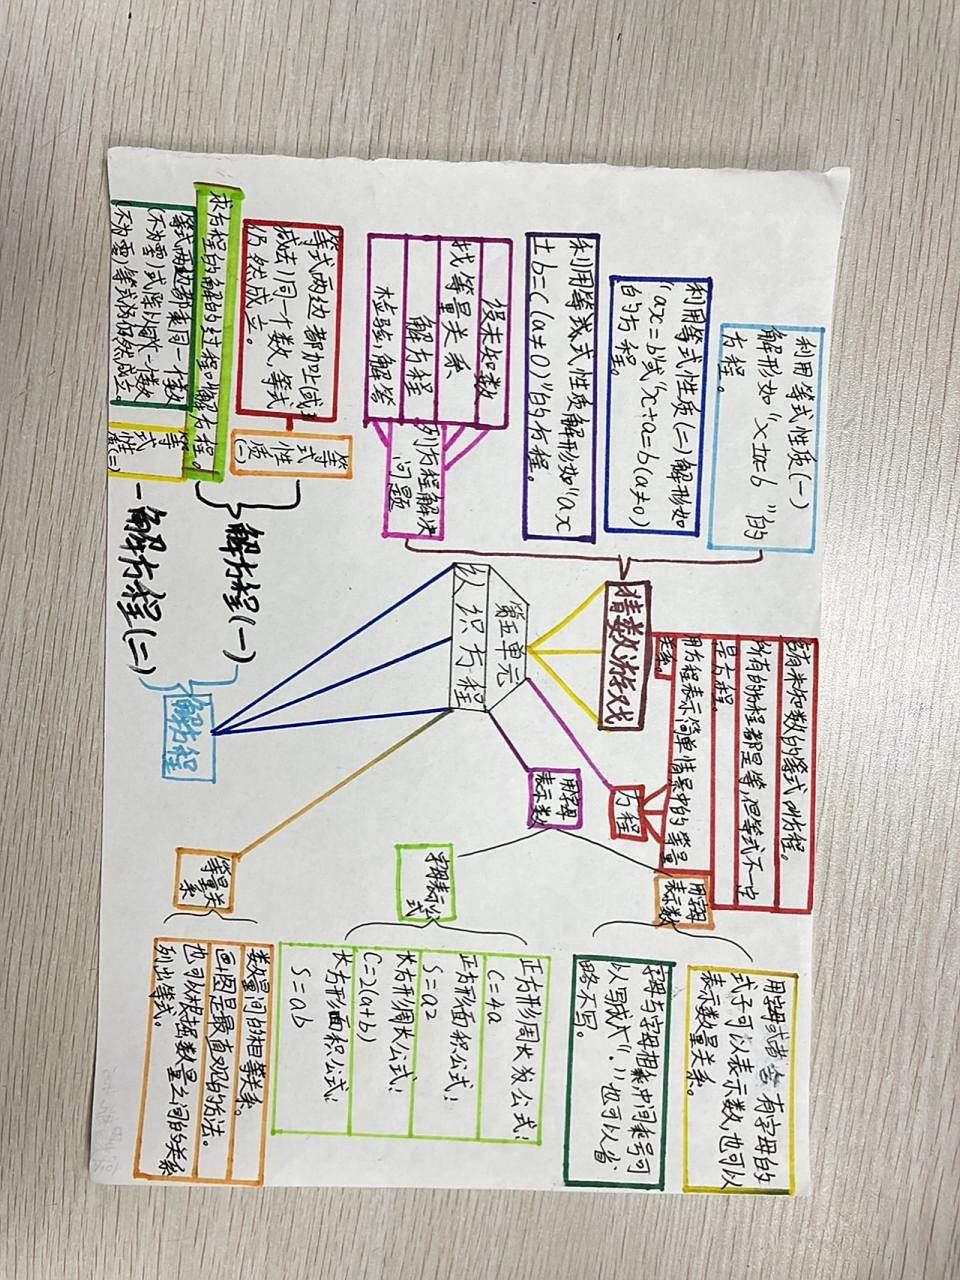 利用等式性质(一)
解形如"x±a=b"的
方程。
利用等式性质(二)解形如
"ax=b"或"x÷a=b(a≠0)
的方程。
利用等式式性质解形如"ax
±b=c(a≠0)"的方程。
设未知数
找等量关系
解方程
检验,解答
列方程解决
问题
等式两边都加上或
减去同一个数,等式
仍然成立。
等式
性质(一)
求方程的解的过程叫解方程。
等式两边都乘同一个数
等式
性
质(二)
解方程(一)
解方程(二)
解方程
猜数游戏
第五单元
认识方程
含有未知数的等式叫方程。
所有的方程都是等,但等式不一定
是方程。
用方程表示简单情景中的等量
关系。
方程
用字母
表示数
用字母
表示数
字母表示公
式
等量关
系
用字母或者含有字母的
式子可以表示数,也可以
表示数量关系。
字母与字母相乘,中间乘号可
以写成"·",也可以省
略不写。
正方形周长公式:
C=4a
正方形面积公式:
S=a2
长方形周长公式:
C=2(a+b)
长方形面积公式:
S=ab
数量间的相等关系。
画图是最直观的方法。
也可以根据数量之间的关系
列出等式。